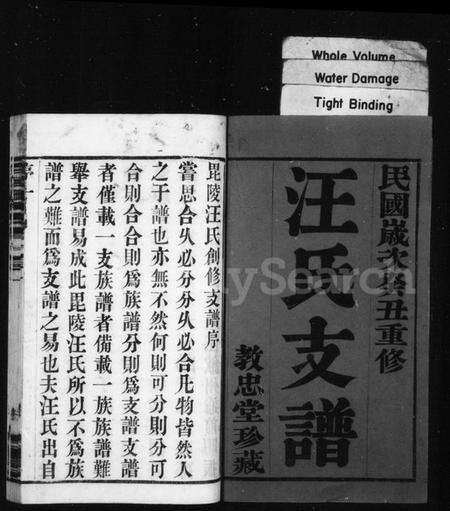 Whole Volume
Water Damage
Tight Binding
民國歲次癸丑重修
汪氏支譜
教忠堂珍藏
毘陵汪氏創修支譜序
嘗思合久必分分久必合凡物皆然人
之于譜也亦無不然何則可分則分可
合則合合則為族譜分則為支譜支譜
者僅載一支族譜者備載一族族譜難
舉支譜易成此毘陵汪氏所以不為族
譜之難而為支譜之易也夫汪氏出自
序一
MySearch